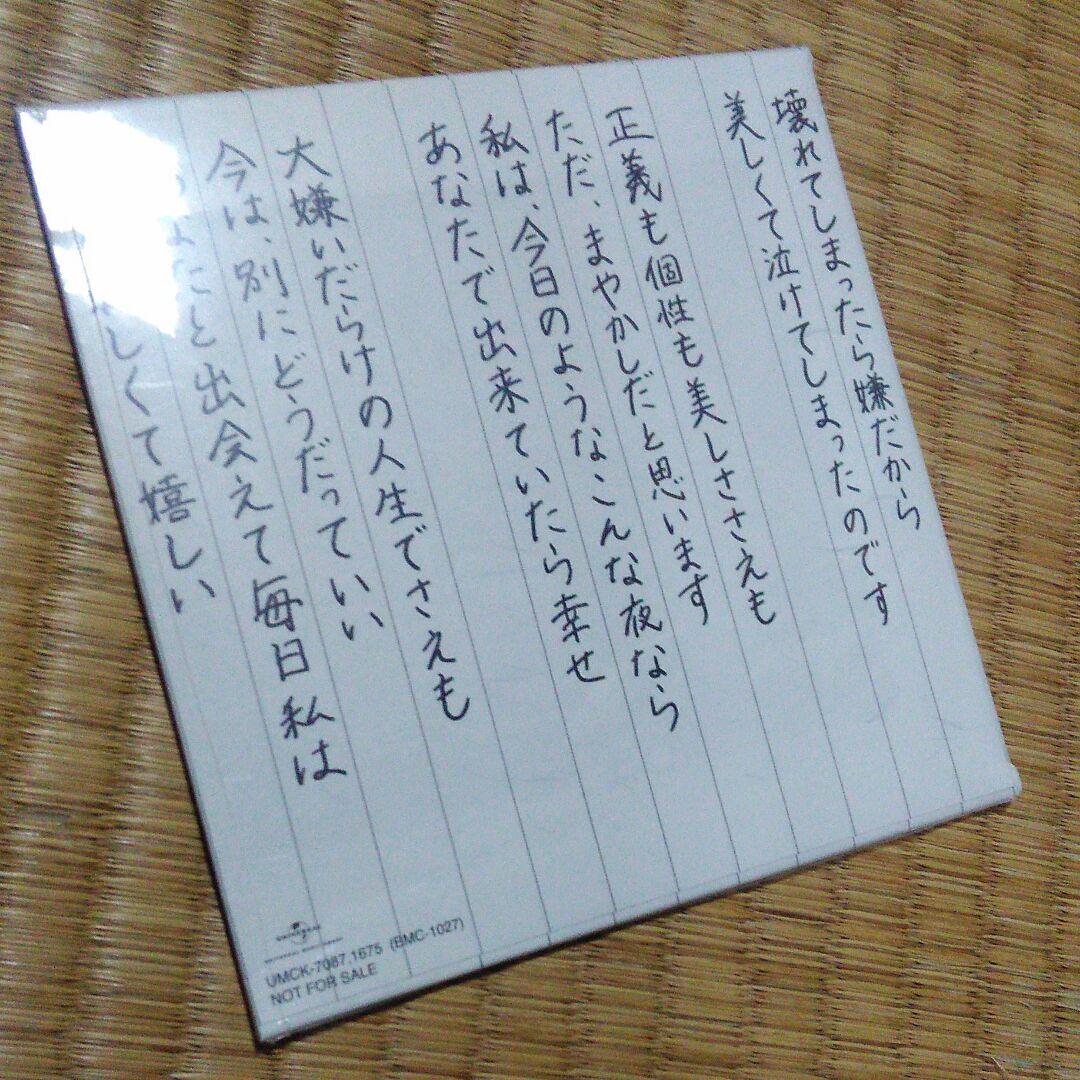 壊れてしまったら嫌だから
美しくて泣けてしまったのです
正義も個性も美しささえも
ただ、まやかしだと思います
私は、今日のようなこんな夜なら
あなたで出来ていたら幸せ
大嫌いだらけの人生でさえも
今は、別にどうだっていい
と出会えて毎日私は
しくて嬉しい
UNIVERSAL
UMCK-7087,1675 (BMC-1027)
NOT FOR SALE